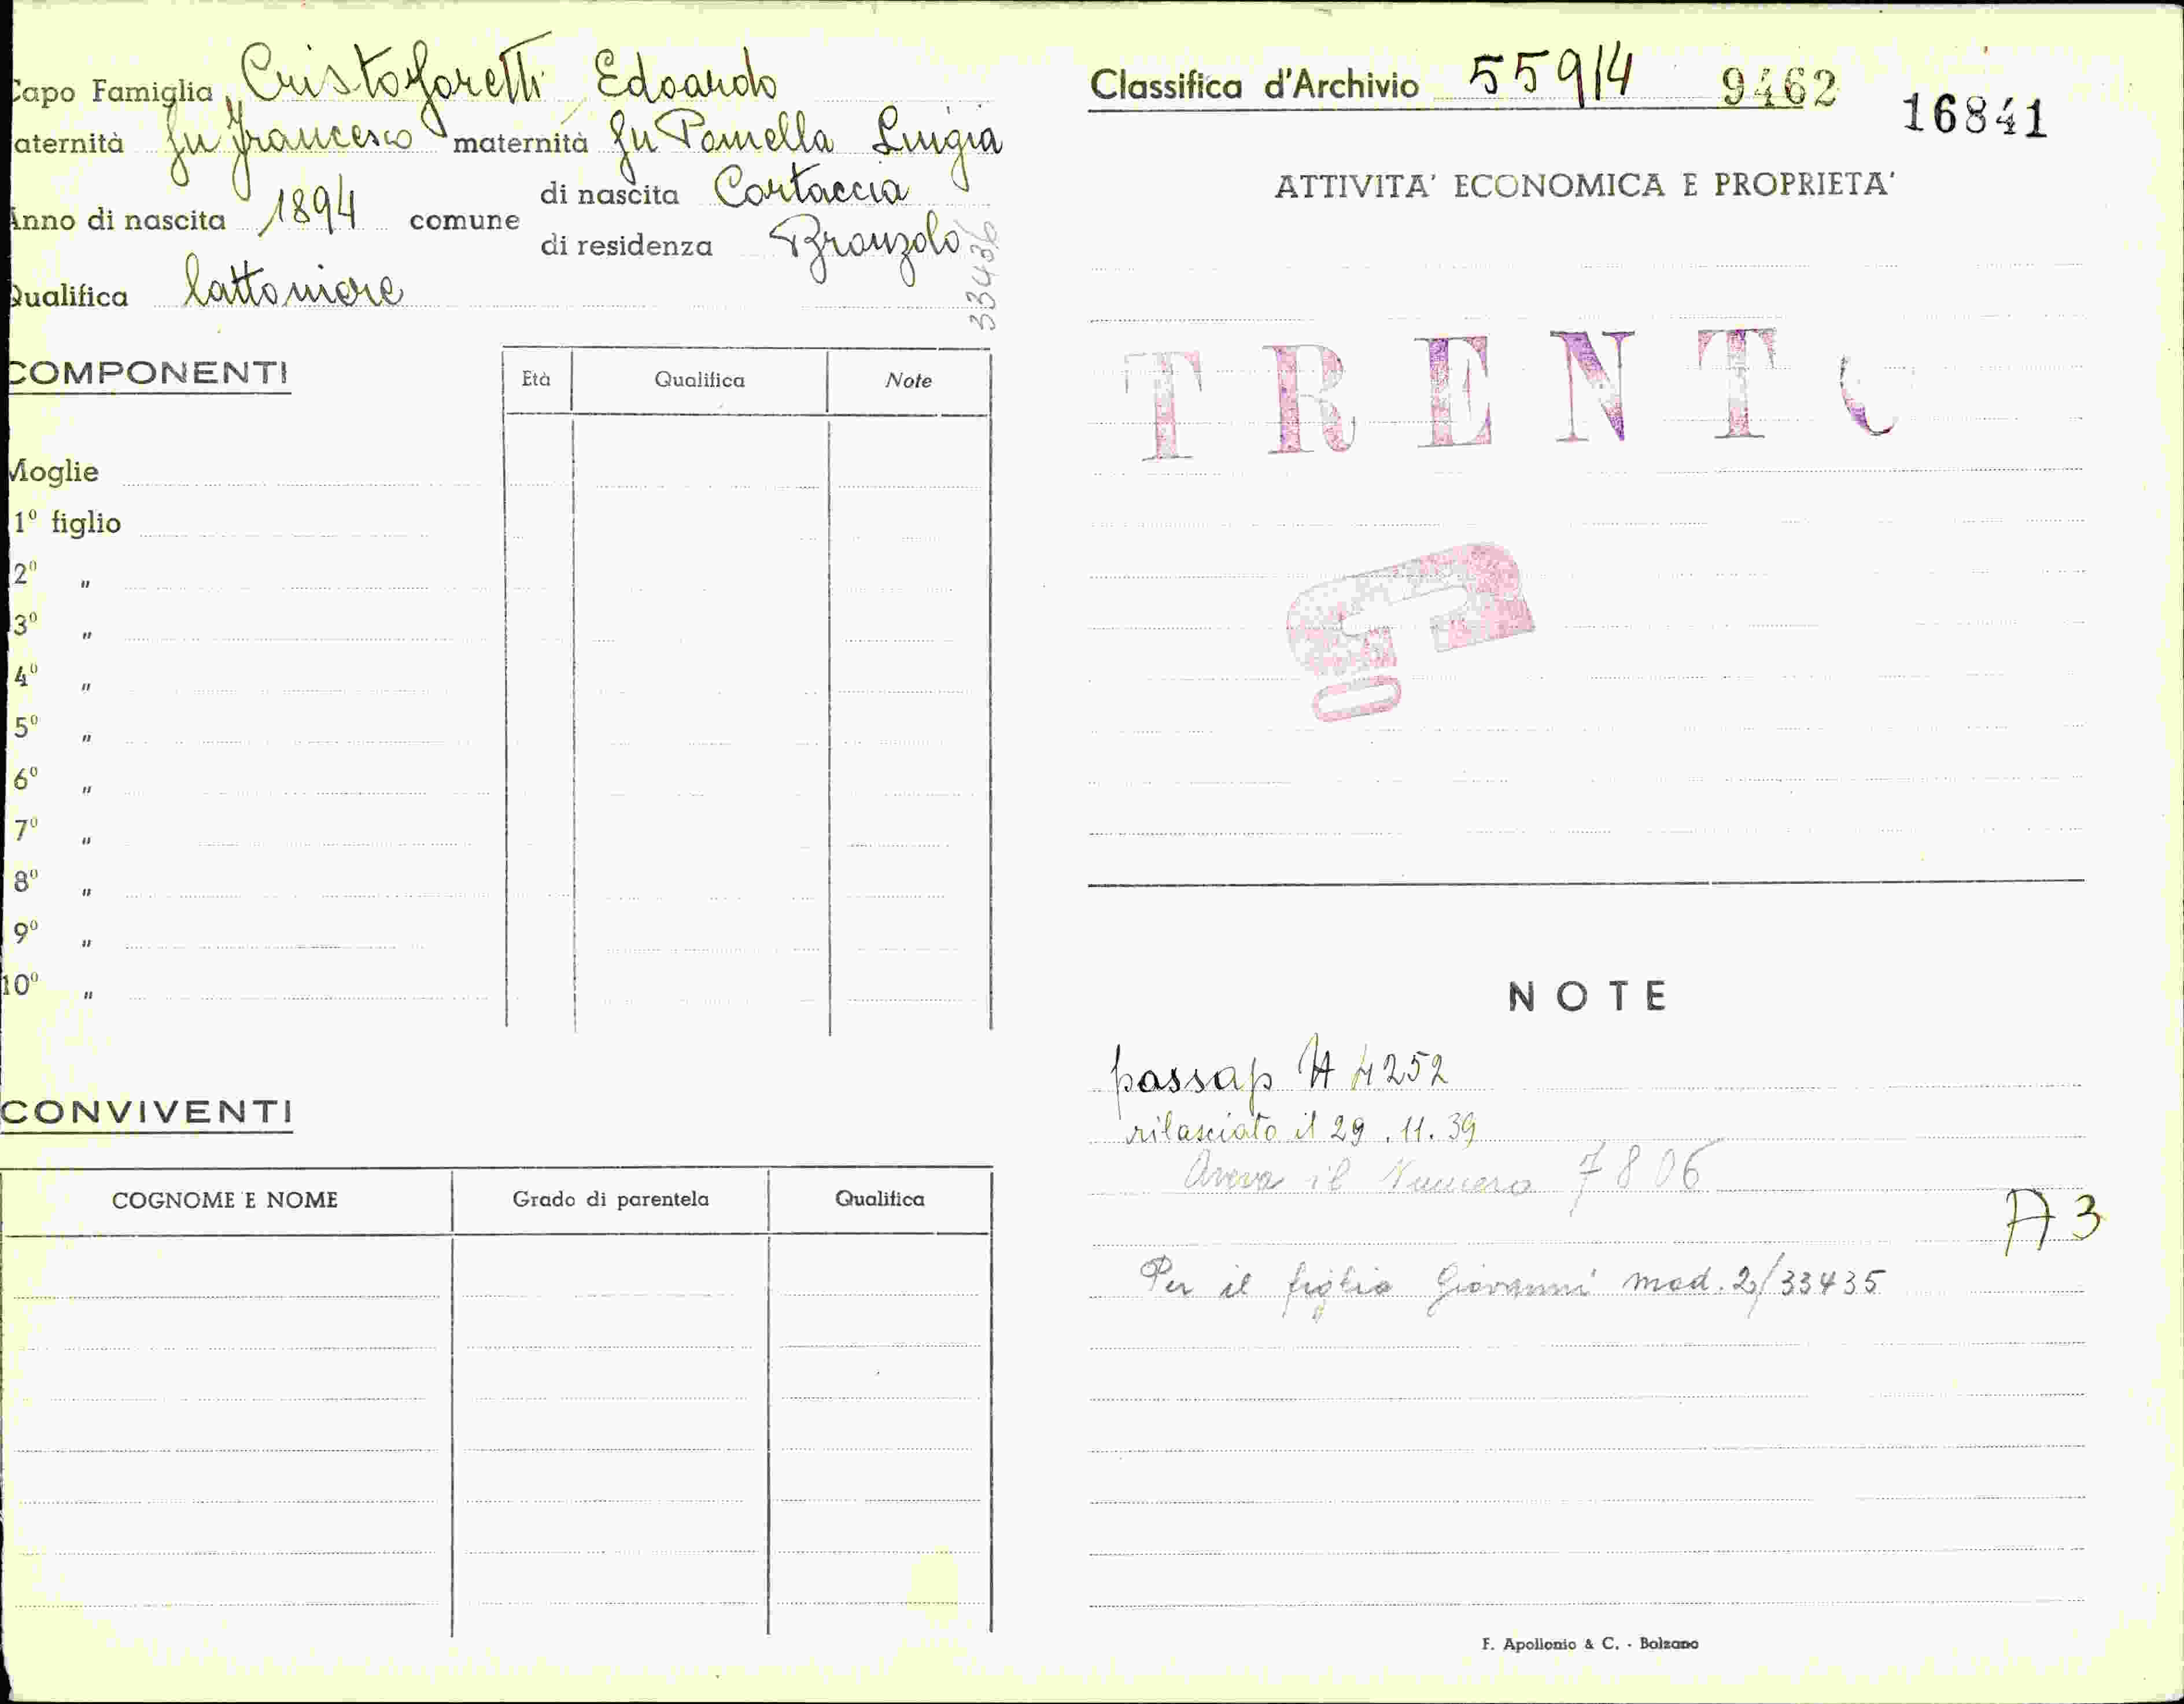 Capo Famiglia Cristoforetti Edoardo
aternità fu Francesco maternità fu Pomella Luigia
Anno di nascita 1894 comune di nascita Cortaccia
di residenza Bronzolo
33436
Qualifica lattoniere
COMPONENTI
Età Qualifica Note
Moglie
1º figlio
2º "
3º "
4º "
5º "
6º "
7º "
8º "
9º "
10º "
CONVIVENTI
COGNOME E NOME Grado di parentela Qualifica
Classifica d'Archivio 559/4 9462 16841
ATTIVITA' ECONOMICA E PROPRIETA'
TRENTO
NOTE
passap A 4252
rilasciato il 29.11.39
Aveva il Numero 7806
A3
Per il figlio Giovanni mod. 2/33435
F. Apollonio & C. - Bolzano